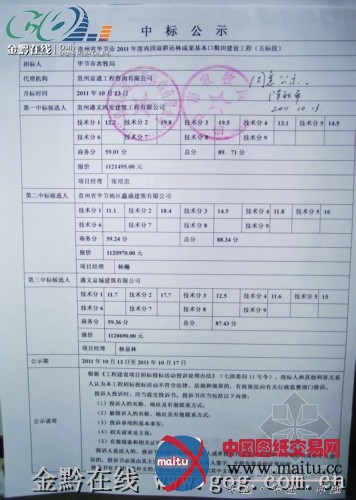 金黔在线
中标公示
贵州省毕节市2011年度巩固退耕还林成果基本口粮田建设工程(五标段)
招标人 毕节市农牧局
代理机构 贵州富通工程咨询有限公司
开标时间 2011年10月13日
2011.10.13
第一中标候选人 贵州遵义鸿发建筑工程有限公司
技术分1 12.2 技术分2 19.8 技术分3 19.5 技术分4 13.1 技术分5 14.5
商务分 59.01分 总分 89.71分
报价 1121495.00元
项目经理 张培忠
第二中标候选人 贵州省毕节地区鑫盛建筑有限公司
技术分1 11.1 技术分2 18.4 技术分3 14.5 技术分4 11.8 技术分5 16
商务分 59.24分 总分 88.34分
报价 1120970.00元
项目经理 杨瀚
第二中标候选人 遵义富城建筑有限公司
技术分1 11.7 技术分2 17.7 技术分3 12.5 技术分4 11.6 技术分5 15
商务分 59.36分 总分 87.43分
报价 1120690.00元
项目经理 杨显林
公示期 2011年10月13日至2011年10月17日
公示说明
根据《工程建设项目招标投标活动投诉处理办法》(七部委局11号令),投标人和其他利害关系
人认为本工程招标投标活动不符合法律、法规和规章的,有权依法向有关行政监督部门投诉。
投诉人投诉时,应当提交投诉书,投诉书应当包括以下内容:
(1)投诉人的名称、地址及有效联系方式;
(2)被投诉人的名称、地址及有效联系方式;
(3)投诉事项的基本事实;
(4)相关请求及主张;
(5)有效线索和相关证
maitu
中国图纸交易网
www.maitu.cc
金黔在线 www.gog.com.cn